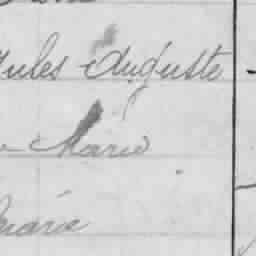 Jules Auguste
Marie
Marie